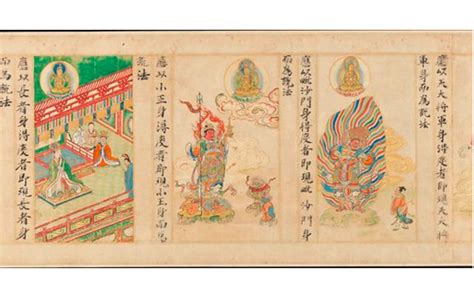 應以天大將軍身得度者即現天大將
軍身而為說法
應以毗沙門身得度者即現毗沙門身
而為說法
應以小王身得度者即現小王身而為
說法
應以長者身得度者即現長者身